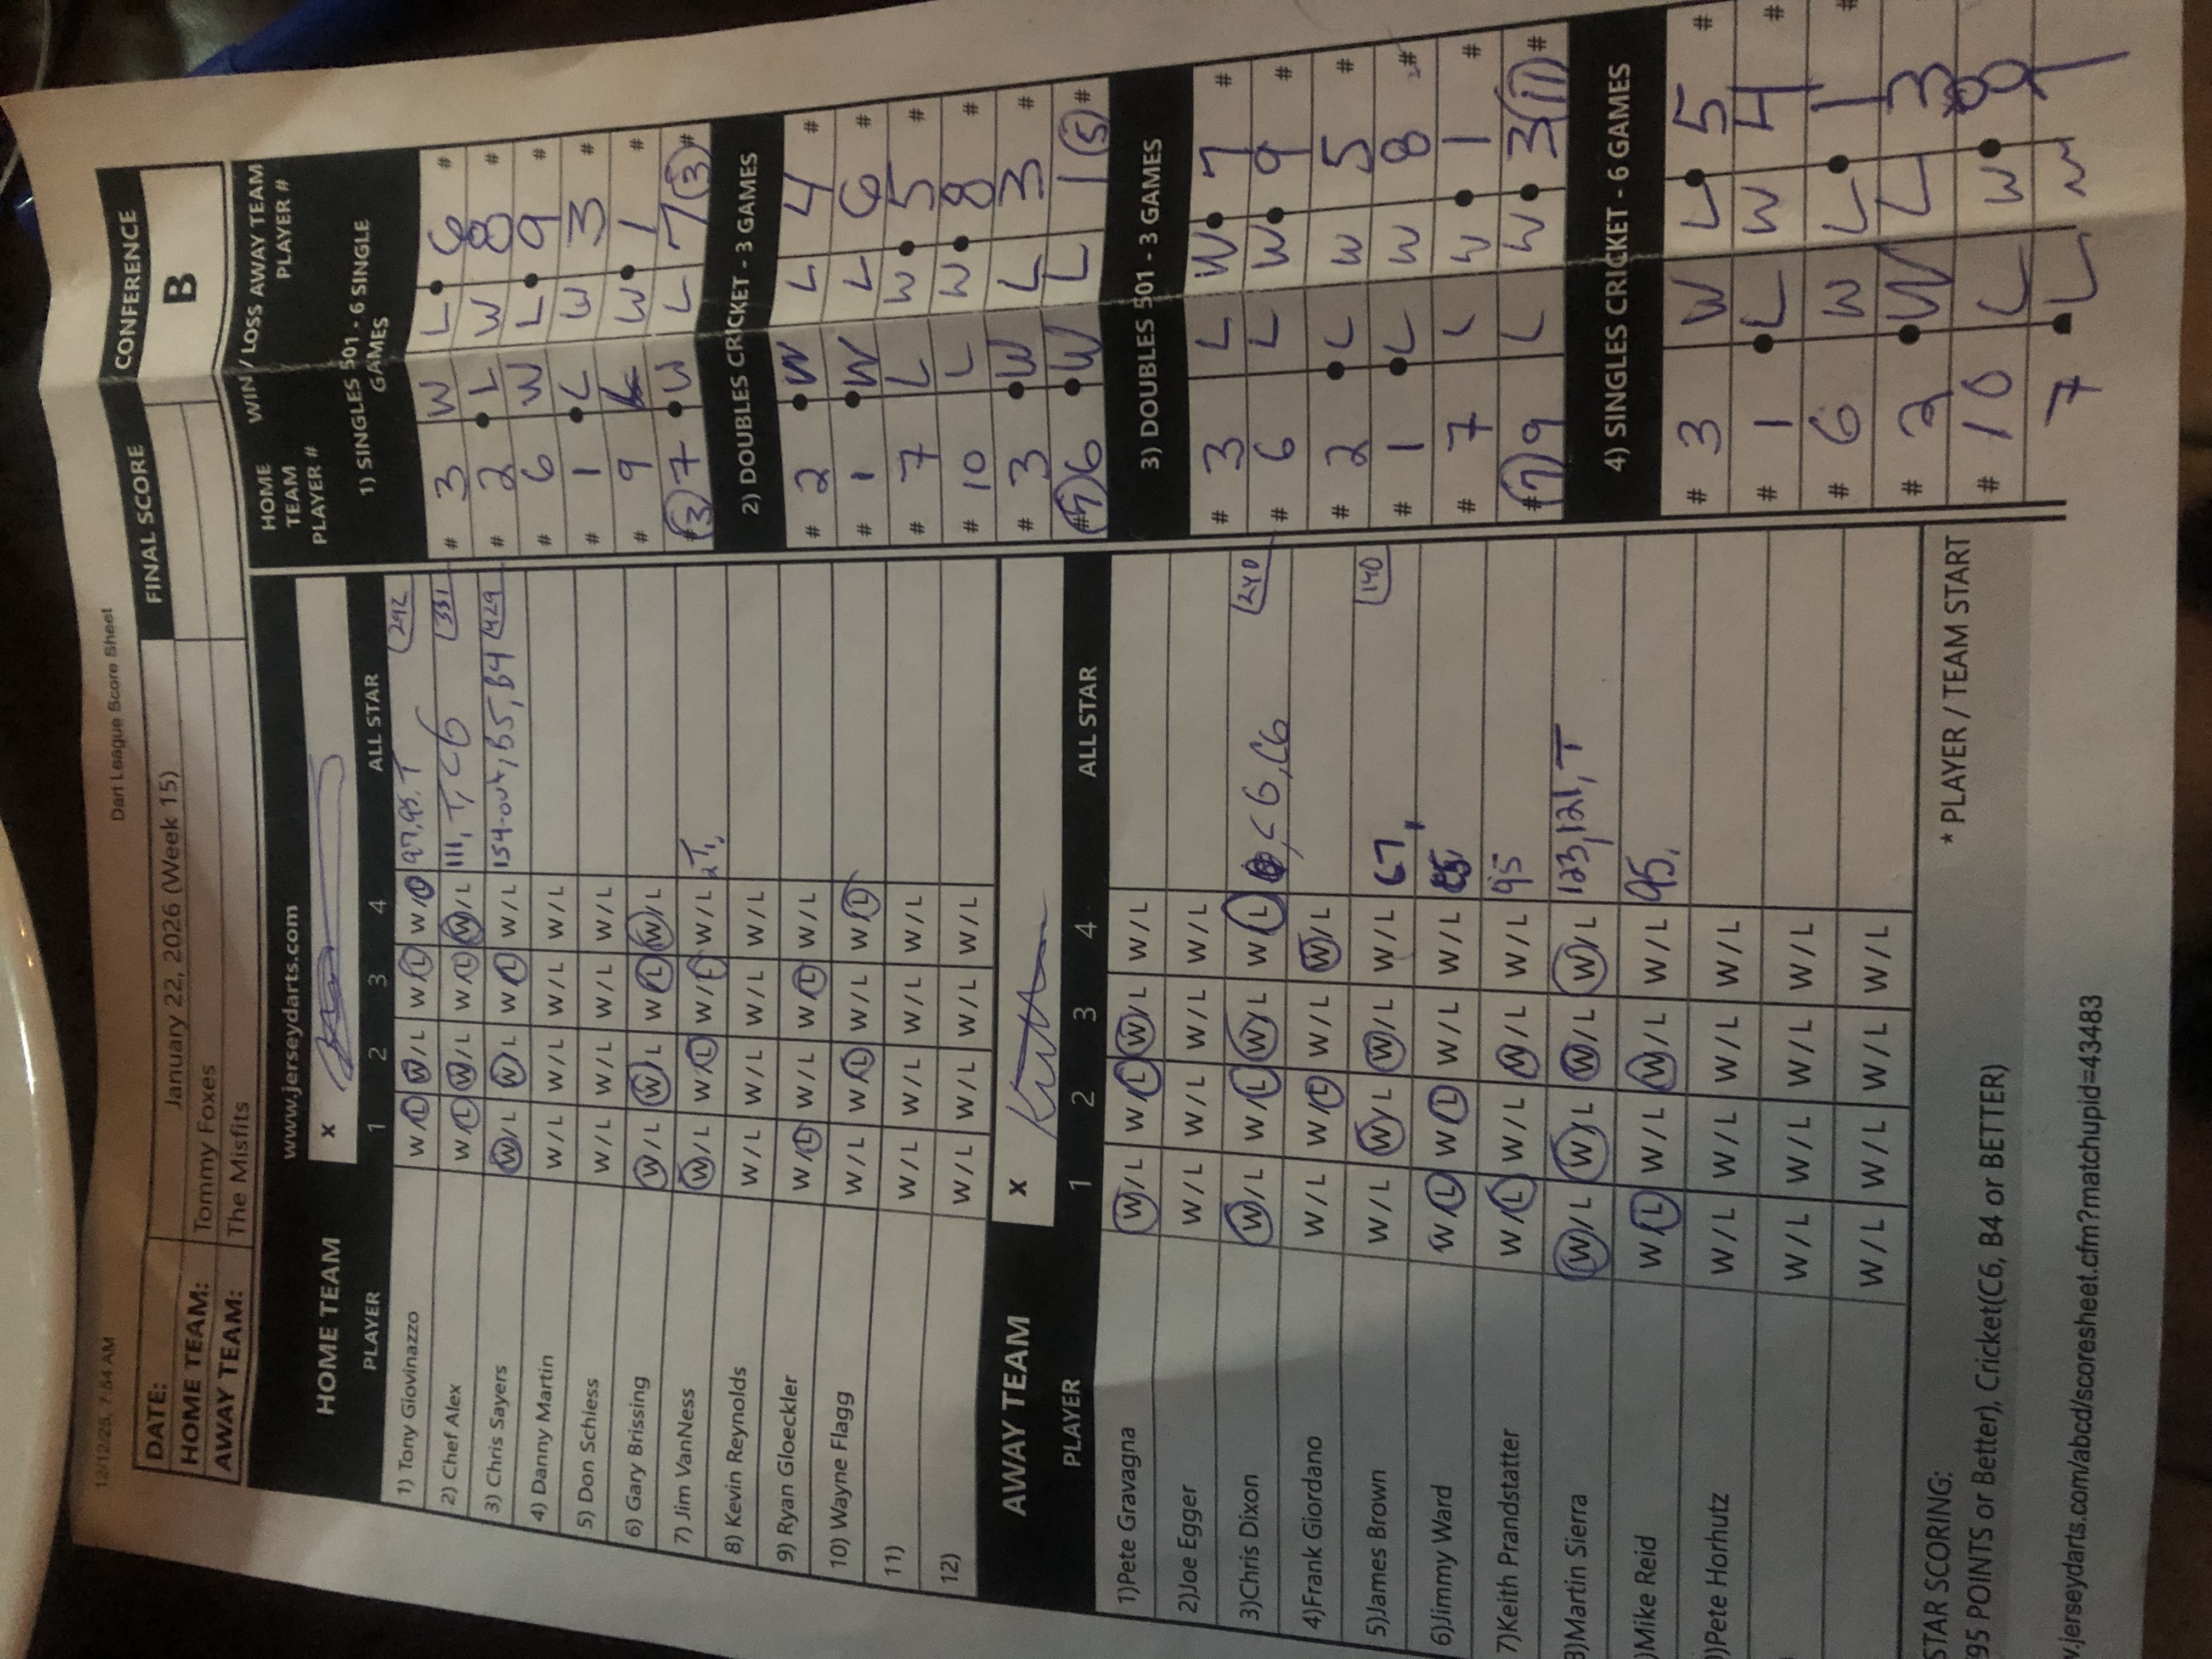 12/12/25, 7:54 AM
Dart League Score Sheet
DATE: January 22, 2026 (Week 15)
HOME TEAM: Tommy Foxes
AWAY TEAM: The Misfits
FINAL SCORE
CONFERENCE
B
www.jerseydarts.com
HOME TEAM
X
PLAYER 1 2 3 4 ALL STAR
1) Tony Giovinazzo W/L W/L W/L W/L 97, 95, T 292
2) Chef Alex W/L W/L W/L W/L 111, T, C6 331
3) Chris Sayers W/L W/L W/L W/L 154-out, B5, B4 429
4) Danny Martin W/L W/L W/L W/L
5) Don Schiess W/L W/L W/L W/L
6) Gary Brissing W/L W/L W/L W/L
7) Jim VanNess W/L W/L W/L W/L 2T,
8) Kevin Reynolds W/L W/L W/L W/L
9) Ryan Gloeckler W/L W/L W/L W/L
10) Wayne Flagg W/L W/L W/L W/L
11) W/L W/L W/L W/L
12) W/L W/L W/L W/L
AWAY TEAM
X
PLAYER 1 2 3 4 ALL STAR
1)Pete Gravagna W/L W/L W/L W/L
2)Joe Egger W/L W/L W/L W/L
3)Chris Dixon W/L W/L W/L W/L C6, C6 240
4)Frank Giordano W/L W/L W/L W/L
5)James Brown W/L W/L W/L W/L 140
6)Jimmy Ward W/L W/L W/L W/L
7)Keith Prandstatter W/L W/L W/L W/L 95
8)Martin Sierra W/L W/L W/L W/L 123, 121, T
)Mike Reid W/L W/L W/L W/L 95,
)Pete Horhutz W/L W/L W/L W/L
W/L W/L W/L W/L
W/L W/L W/L W/L
HOME TEAM PLAYER # WIN / LOSS AWAY TEAM PLAYER #
1) SINGLES 501 - 6 SINGLE GAMES
# 3 W L 6 #
# 2 L W 8 #
# 6 W L 9 #
# 1 L W 3 #
# 9 L W 1 #
# (3) 7 W L 7 (3) #
2) DOUBLES CRICKET - 3 GAMES
# 2 W L 4 #
# 1 W L 6 #
# 7 L W 5 #
# 10 L W 8 #
# 3 W L 3 #
# (7) 6 W L 1 (5) #
3) DOUBLES 501 - 3 GAMES
# 3 L W 7 #
# 6 L W 9 #
# 2 L W 5 #
# 1 L W 8 #
# 7 L W 1 #
# (7) 9 L W 3 (11) #
4) SINGLES CRICKET - 6 GAMES
# 3 W L 5 #
# 1 L W 4 #
# 6 W L 1 #
# 2 W L 3
# 10 L W 8
7 L W
* PLAYER / TEAM START
STAR SCORING:
95 POINTS or Better), Cricket(C6, B4 or BETTER)
w.jerseydarts.com/abcd/scoresheet.cfm?matchupid=43483